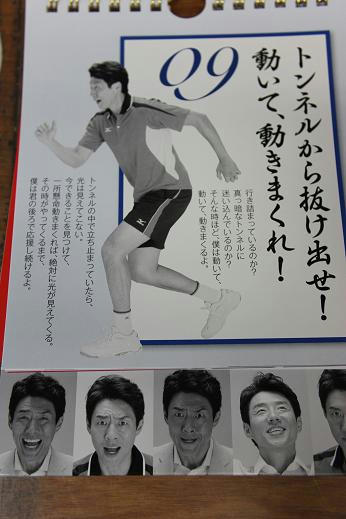 09
トンネルから抜け出せ!
動いて、動きまくれ!
行き詰まっているのか?
真っ暗なトンネルに
迷い込んでいるのか?
そんな時ほど、僕は動いて、
動いて、動きまくるよ。
トンネルの中で立ち止まっていたら、
光は見えてこない。
今できることを見つけて、
一所懸命動きまくれば、絶対に光が見えてくる。
その時がやってくるまで、
僕は君の後ろで応援し続けるよ。